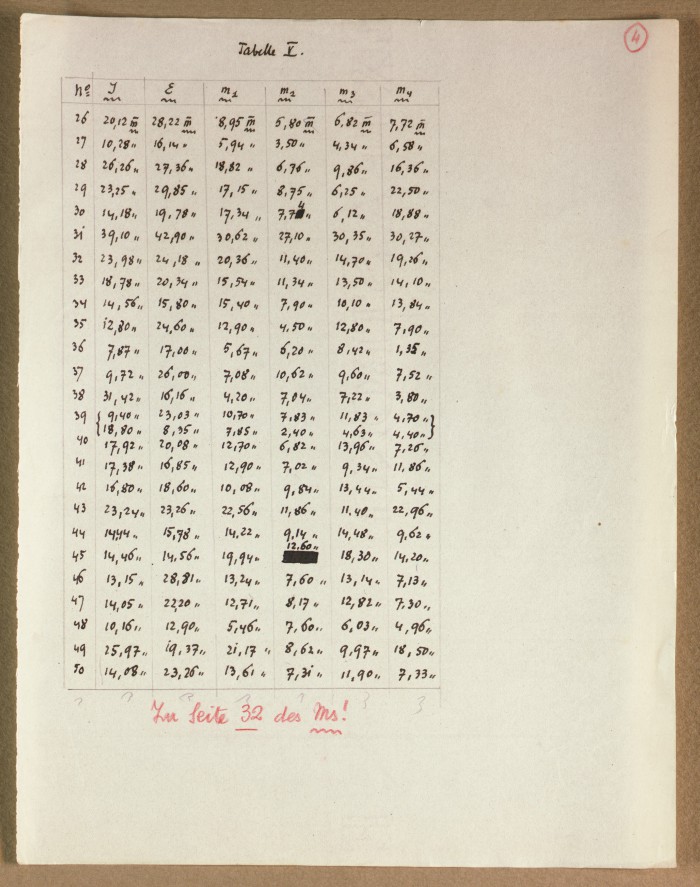 4
Tabelle V.
No J E m1 m2 m3 m4
26 20,12 m 28,22 m 8,95 m 5,80 m 6,82 m 7,72 m
27 10,28 „ 16,14 „ 5,94 „ 3,50 „ 4,34 „ 6,58 „
28 26,26 „ 27,36 „ 18,82 „ 6,76 „ 9,86 „ 16,36 „
29 23,25 „ 29,85 „ 17,15 „ 8,75 „ 6,25 „ 22,50 „
30 14,18 „ 19,78 „ 17,34 „ 7,74 „ 6,12 „ 18,88 „
31 39,10 „ 42,90 „ 30,62 „ 27,10 „ 30,35 „ 30,27 „
32 23,98 „ 24,18 „ 20,36 „ 11,40 „ 14,70 „ 19,26 „
33 18,78 „ 20,34 „ 15,54 „ 11,34 „ 13,50 „ 14,10 „
34 14,56 „ 15,80 „ 15,40 „ 7,90 „ 10,10 „ 13,84 „
35 12,80 „ 24,60 „ 12,90 „ 4,50 „ 12,80 „ 7,90 „
36 7,87 „ 17,00 „ 5,67 „ 6,20 „ 8,42 „ 1,35 „
37 9,72 „ 26,00 „ 7,08 „ 10,62 „ 9,60 „ 7,52 „
38 31,42 „ 16,16 „ 4,20 „ 7,04 „ 7,22 „ 3,80 „
39 { 9,40 „ 23,03 „ 10,70 „ 7,83 „ 11,83 „ 4,70 „ }
18,80 „ 8,35 „ 7,85 „ 2,40 „ 4,63 „ 4,40 „
40 17,92 „ 20,08 „ 12,70 „ 6,82 „ 13,96 „ 7,26 „
41 17,38 „ 16,85 „ 12,90 „ 7,02 „ 9,34 „ 11,86 „
42 16,80 „ 18,60 „ 10,08 „ 9,84 „ 13,44 „ 5,44 „
43 23,24 „ 23,26 „ 22,56 „ 11,86 „ 11,40 „ 22,96 „
44 14,44 „ 15,78 „ 14,22 „ 9,14 „ 14,48 „ 9,62 „
45 14,46 „ 14,56 „ 19,94 „ 12,60 „ 18,30 „ 14,20 „
46 13,15 „ 28,81 „ 13,24 „ 7,60 „ 13,14 „ 7,13 „
47 14,05 „ 22,20 „ 12,71 „ 8,17 „ 12,82 „ 7,30 „
48 10,16 „ 12,90 „ 5,46 „ 7,60 „ 6,03 „ 4,96 „
49 25,97 „ 19,37 „ 21,17 „ 8,62 „ 9,97 „ 18,50 „
50 14,08 „ 23,26 „ 13,61 „ 7,31 „ 11,90 „ 7,33 „
Zu Seite 32 des Ms!